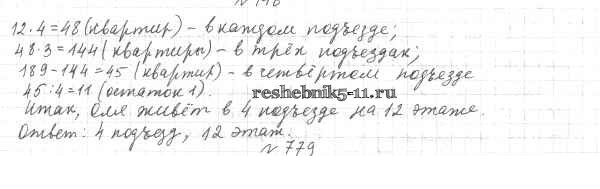 12·4=48 (квартир) - в каждом подъезде;
48·3=144 (квартиры) - в трёх подъездах;
189-144=45 (квартир) - в четвёртом подъезде
45:4=11 (остаток 1).
reshebnik5-11.ru
Итак, Оля живёт в 4 подъезде на 12 этаже.
Ответ: 4 подъезд, 12 этаж.
№ 779